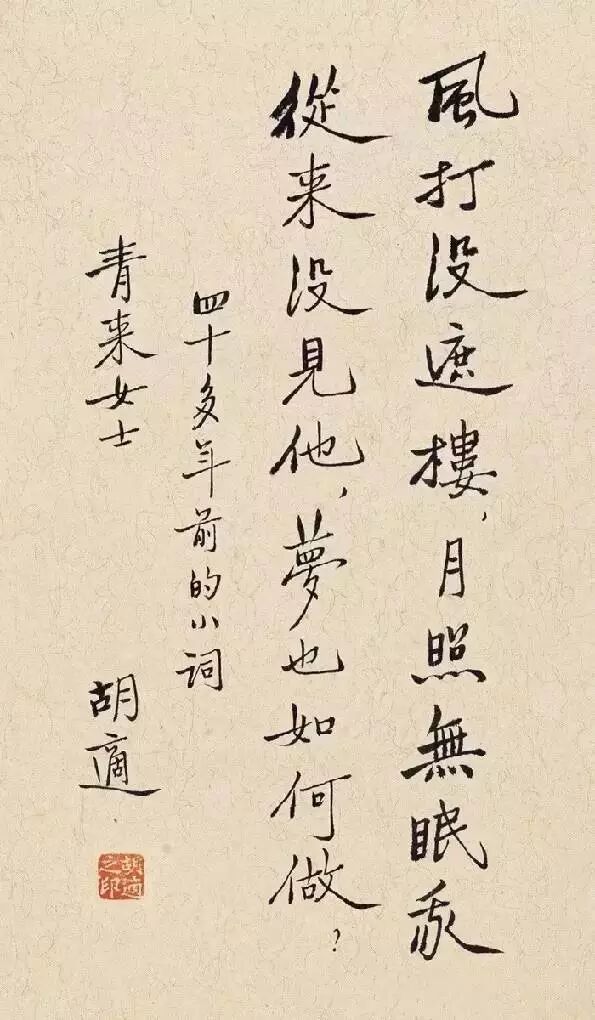 風打没遮樓，月照無眠我
從来没見他，夢也如何做？
四十多年前的小詞
青来女士
胡適
胡適之印